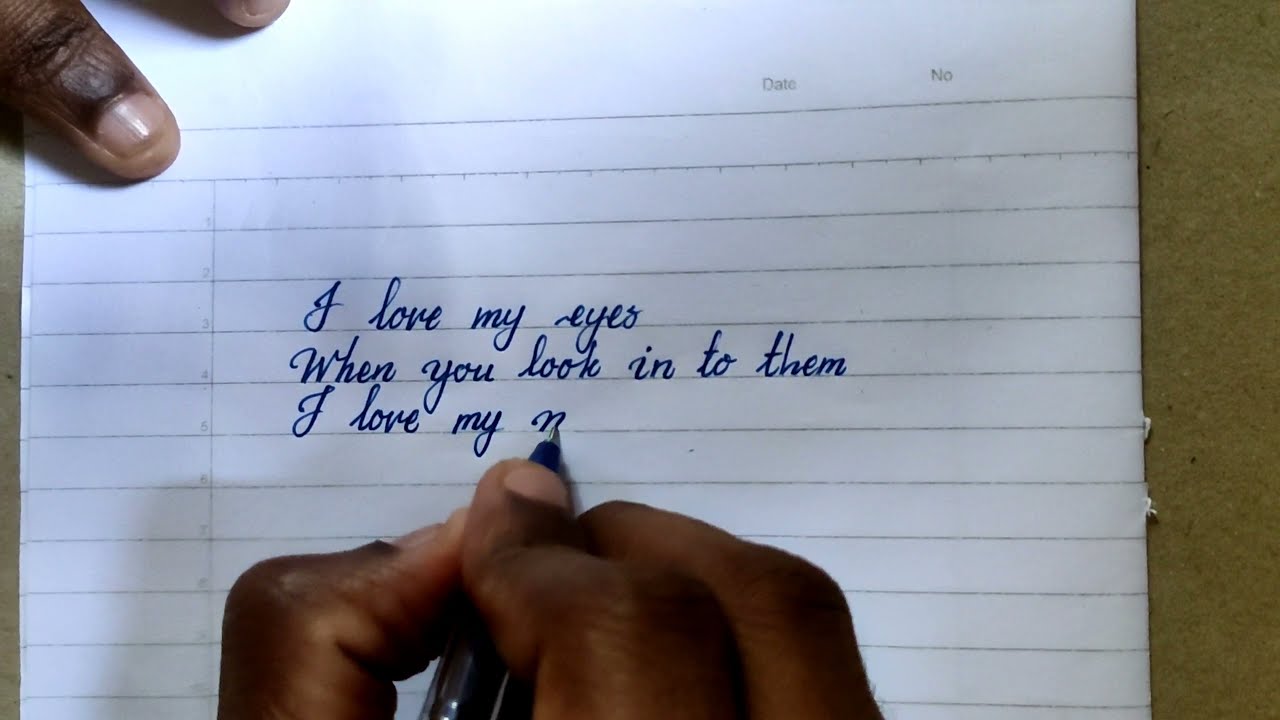 Date No
1
2
3
I love my eyes
4
When you look in to them
5
I love my n
6
7
8